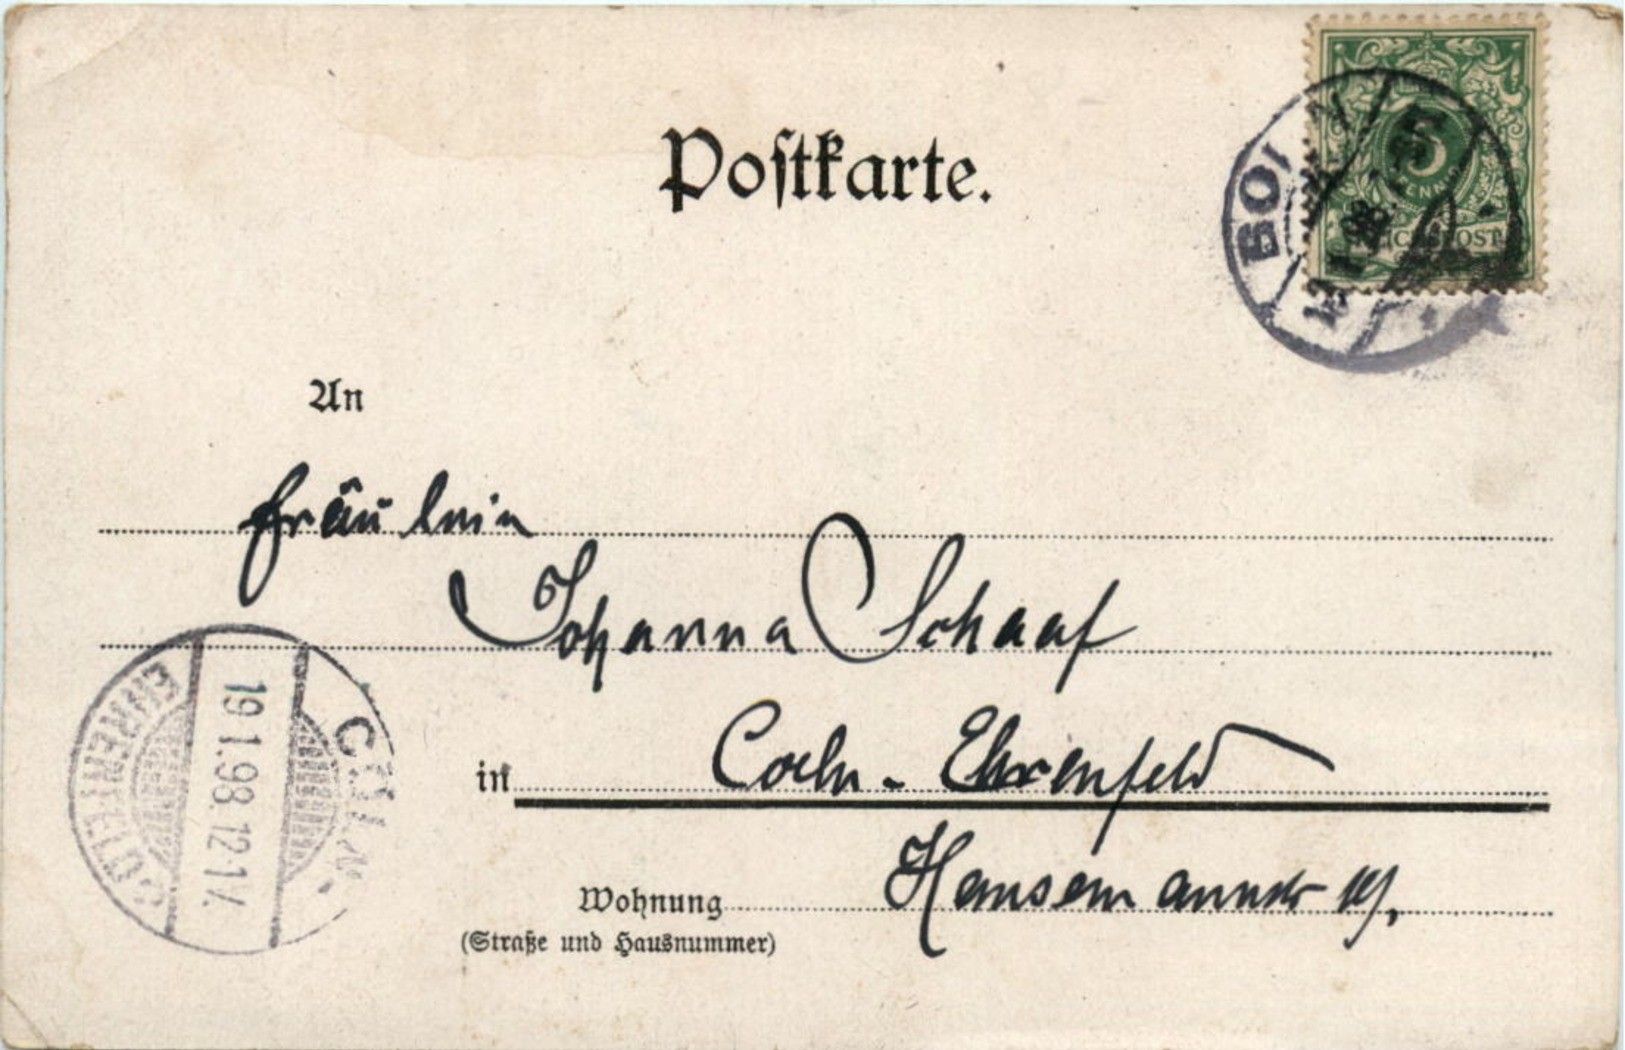 Postkarte.
5
PFENNIG
REICHSPOST
BONN
98
An
Fräulein
Johanna Schaaf
in Coeln - Ehrenfeld
Wohnung Hansemannstr 19,
(Straße und Hausnummer)
CÖLN-
19.1.98.12-1V.
EHRENFELD